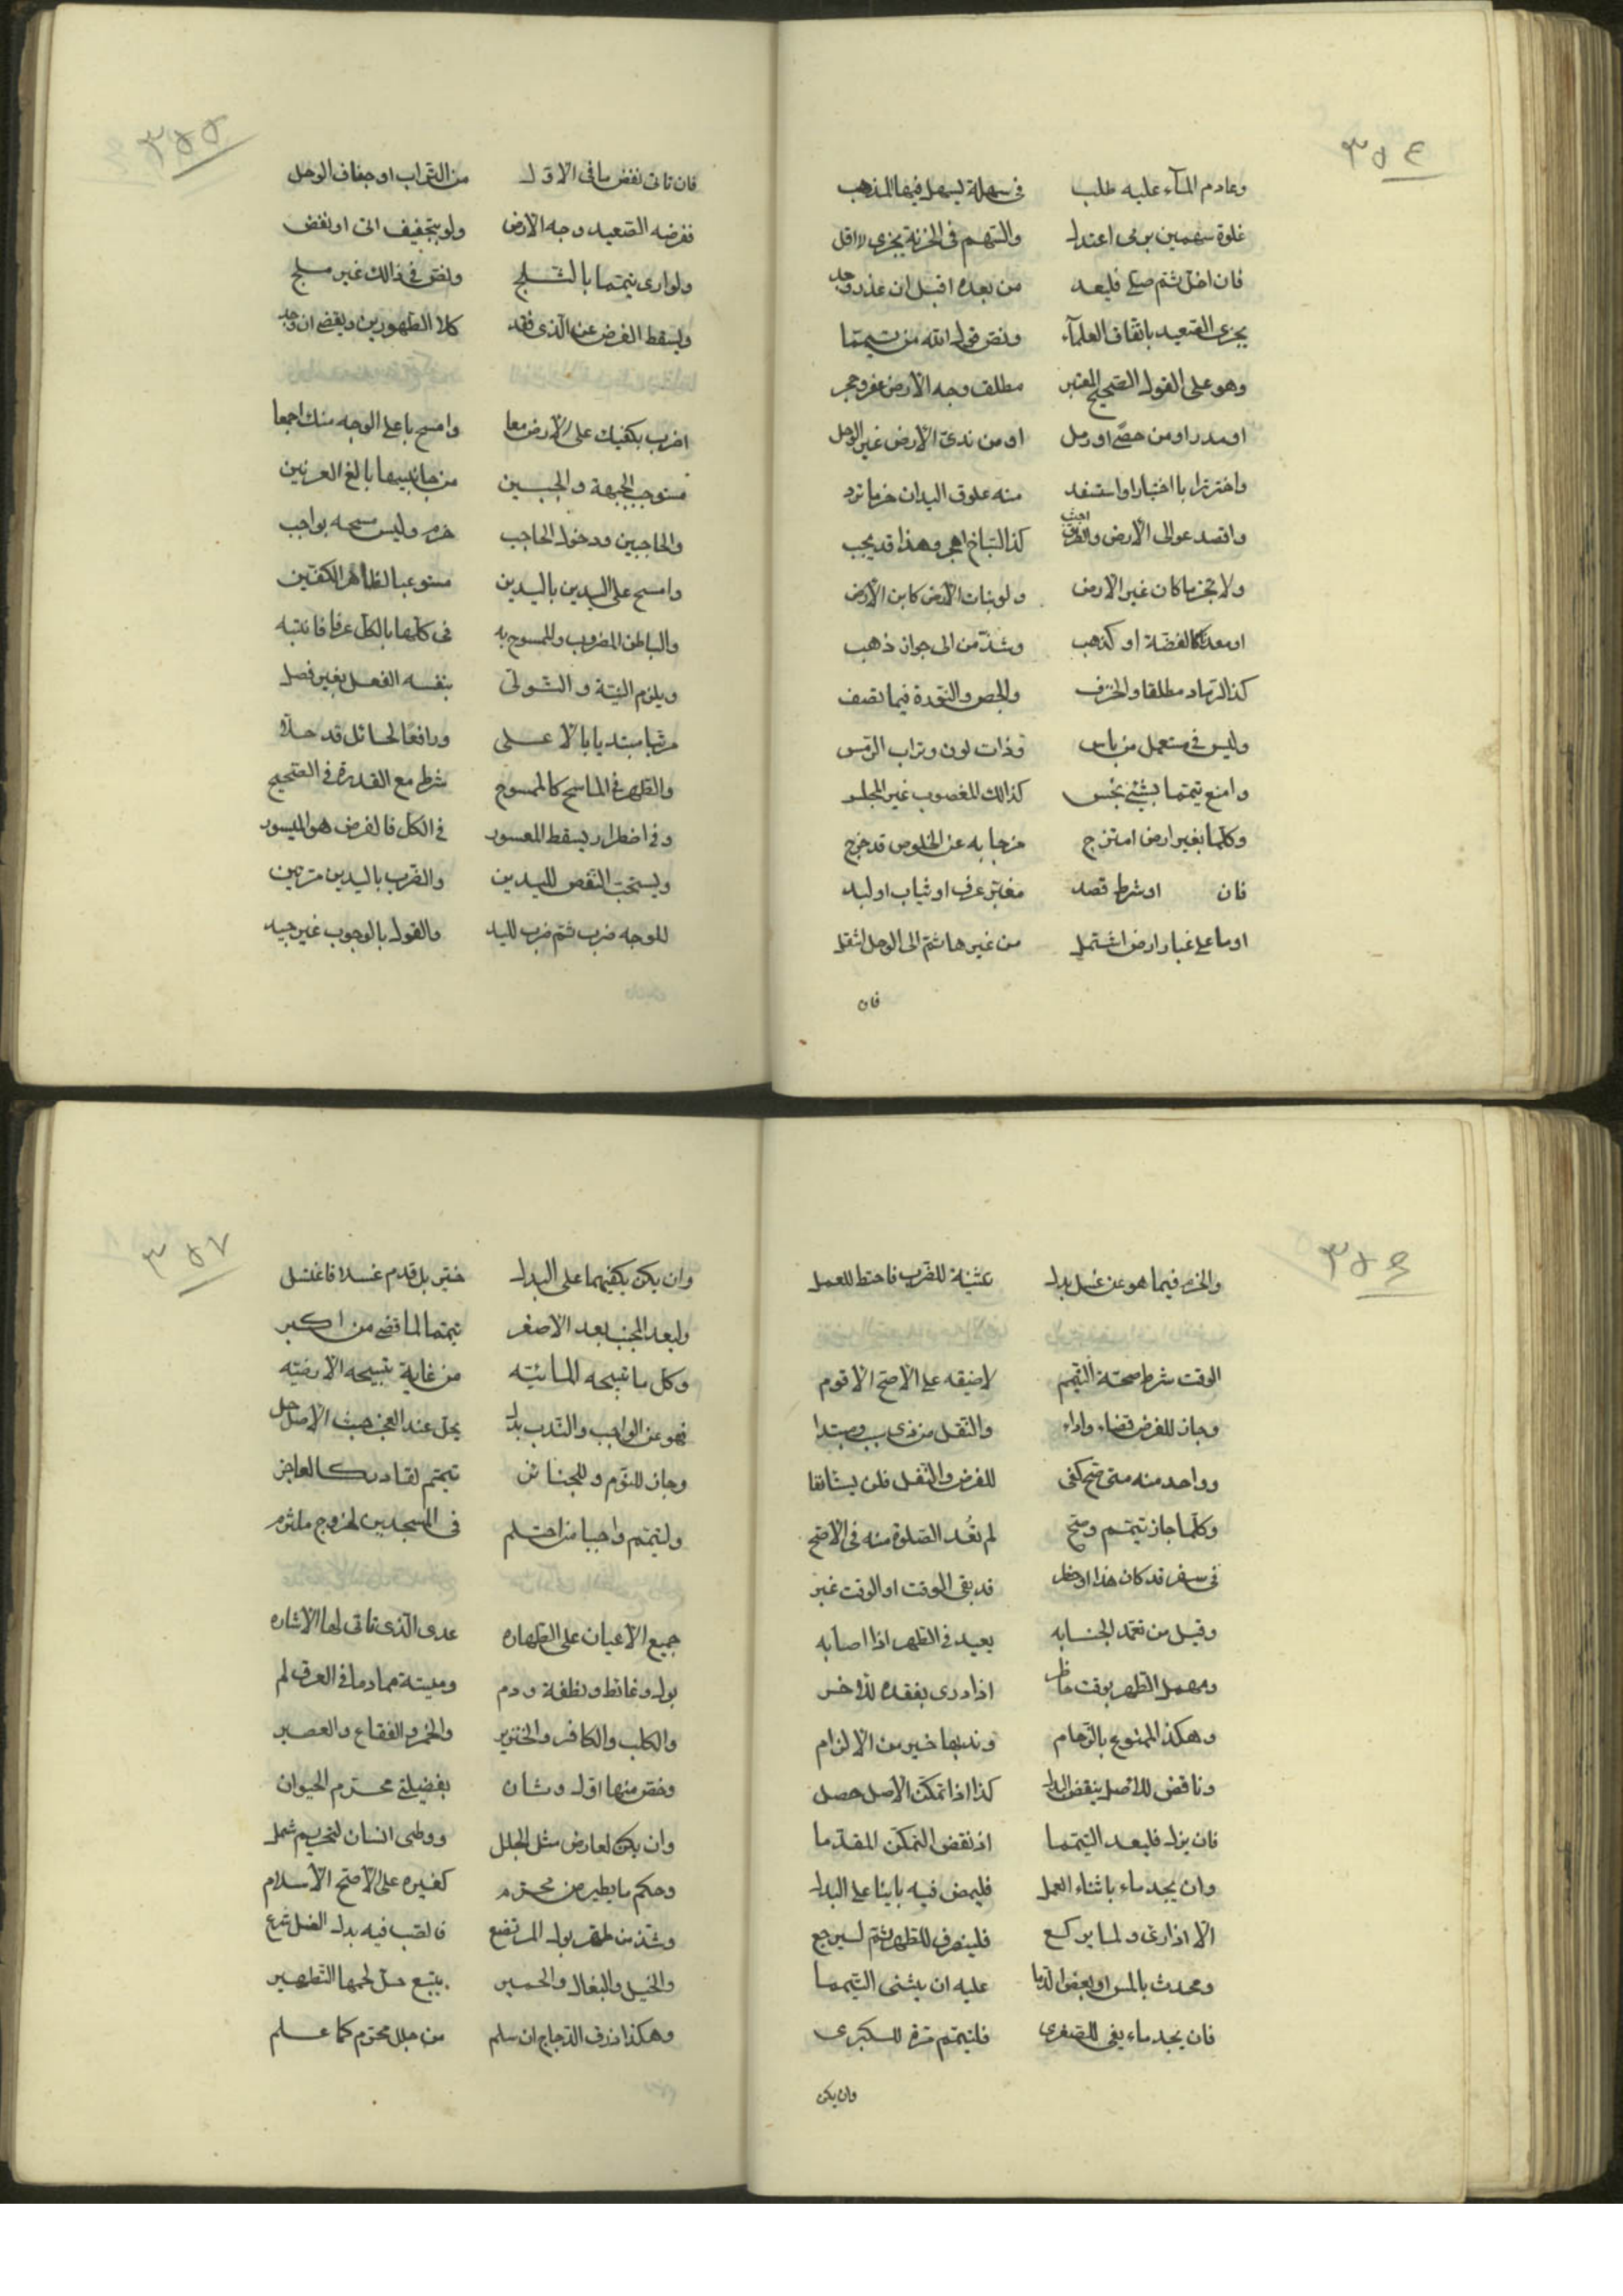 ٣٥٤
وعادم المآء عليه طلب في سهلة يسهل فيها المذهب
غلوة سهمين برمى اعتدل والسهم في الحزنة يجزى لا اقل
فان اخل ثم صلى فليعد من بعده اقبل ان عذر وجد
يجزى الصعيد باتفاق العلمآء ونص قول الله من تيمما
وهو على القول الصحيح المعتبر مطلق وجه الارض عفر وحجر
او مدر او من حصى او رمل او من ندى الارض غير الوحل
واقصد عوالى الارض والطرق اجتنب كذا السباخ اهجر وهذا قد يجب
ولا تجز ما كان غير الارض ولو نبات الارض كابن الارض
او معدنا كالفضة او كذهب وشذ من الى جواز ذهب
كذا الرماد مطلقا والخزف والجص والنورة فيما نصف
وليس في مستعمل من باس وذات لون وتراب الرمس
وامنع تيمما بشئ نجس كذالك المغصوب غير المجلس
وكلما بغير ارض امتزج مزجا به عن الخلوص قد خرج
فان او شرط قصد مغبر عرف او ثياب او لبد
او ما على غبار ارض اشتمل من غيرها ثم الى الوحل انتقل
فان
٣٥٥
فان تاتى نفض ما في الاول من التراب او جفاف الوحل
ففرضه الصعيد وجه الارض ولو بتجفيف اتى او نفض
ولو ارى تيمما بالثلج ونص في ذالك غير مسلج
ويسقط الفرض عن الذى فقد كلا الطهورين ويقضى ان وجد
اضرب بكفيك على الارض معا وامسح باعلى الوجه منك اجمعا
مستوجب الجبهة والجبين من جانبيها بالغ العرنين
والحاجبين ودخول الحاجب حزم وليس مسحه بواجب
وامسح على اليدين باليدين مستوعبا لظاهر الكفين
والباطن المضروب والممسوح به في كلها بالكل عرفا فانتبه
ويلزم النية والتولى بنفسه الفعل بغير فصل
مرتبا مبتديا بالاعلى ورافعا لحائل قد حلا
والطهر في الماسح كالممسوح شرط مع القدرة في الصحيح
وفى اضطرار يسقط المعسور في الكل فالفرض هو الميسور
ويستحب النفض لليدين والضرب باليدين مرتين
للوجه ضرب ثم ضرب لليد والقول بالوجوب غير جيد
٣٥٦
والحزم فيما هو عن غسل بدل تثنية للضرب فاحتط للعمل
الوقت شرط صحة التيمم لاضيقه على الاصح الاقوم
وجاز للفرض قضاء واداء والنفل من ذى سبب ومبتدا
وواحد منه متى صح كفى للفرض والنفل فلن يستانفا
وكلما جاز تيمم وصح لم تُعد الصلوة منه في الاصح
في سفر قد كان هذا او حضر قد بقى الوقت او الوقت غبر
وقيل من تعمد الجنابه يعيد في الطهر اذا اصابه
ومهمل الطهر بوقت ما
وهكذا الممنوع بالزحام وندبها خير من الالزام
وناقض للاصل ينقض البدل كذا اذا تمكن الاصل حصل
فان يزل فليعد التيمما اذ نقض التمكن المقدما
وان يجد ماء باثناء العمل فليمض فيه بانيا على البدل
الا اذا رءى ولما يركع فلينصرف للطهر ثم ليرجع
ومحدث بالمس او بعض الدما عليه ان يثنى التيمما
فان يجد ماء يفى للصغرى فليتيمم مرة للكبرى
وان يكن
٣٥٧
وان يكن يكفيهما على البدل خير بل قدم غسلا فاغتسل
وليعد المجنب بعد الاصغر تيمما لما قضى من اكبر
وكل ما تبيحه المائيه من غاية تبيحه الارضيه
فهو عن الواجب والندب بدل يحل عند العجز حيث الاصل حل
وجاز للنوم وللجنائز تيمم لقادر كالعاجز
وليتيمم واجبا من احتلم في المسجدين لخروج ملتزم
جميع الاعيان على الطهاره عدى الذى تاتى لها الاشاره
بول وغائط ونطفة ودم وميتة مما دما في العرق لم
والكلب والكافر والخنزير والخمر والفقاع والعصير
وخص منها اول وثان بفضيلتى محترم الحيوان
وان يكن لعارض مثل الجلل ووطى انسان لتحريم شمل
وحكم ما يطير من محترم كغيره على الاصح الاسلام
وشذ من طهر بول المرتضع فالصب فيه بدل الغسل شرع
والخيل والبغال والحمير يتبع حل لحمها التطهير
وهكذا ذرق الدجاج ان سلم من جلل محترم كما علم